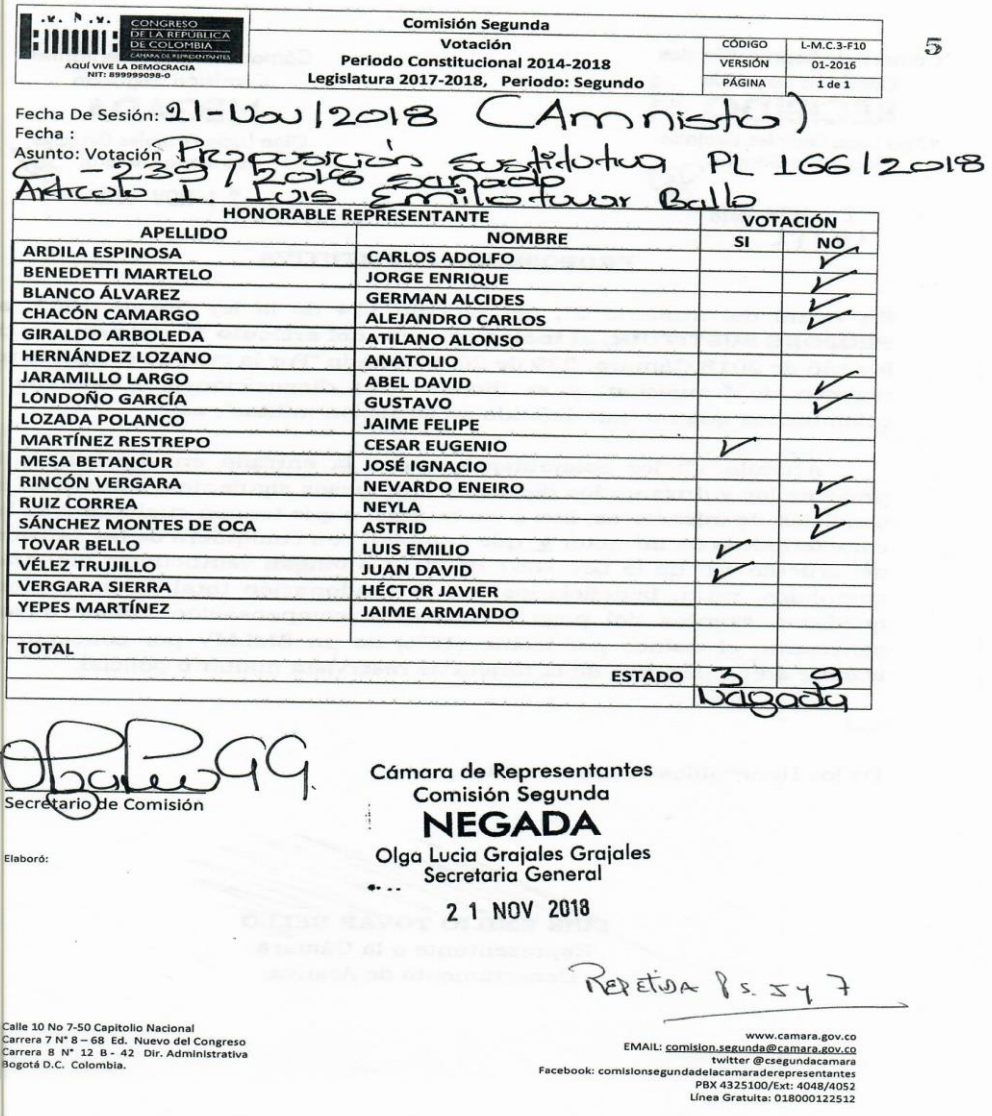 CONGRESO
DE LA REPÚBLICA
DE COLOMBIA
CÁMARA DE REPRESENTANTES
AQUÍ VIVE LA DEMOCRACIA
NIT: 899999098-0
Comisión Segunda
Votación
Periodo Constitucional 2014-2018
Legislatura 2017-2018, Periodo: Segundo
CÓDIGO L-M.C.3-F10
VERSIÓN 01-2016
PÁGINA 1 de 1
5
Fecha De Sesión: 21-Nov/2018 (Amnistía)
Fecha :
Asunto: Votación Proposición sustitutiva PL 166/2018
C - 239/2018 senado
Artículo 1. Luis Emilio tovar Bello
HONORABLE REPRESENTANTE VOTACIÓN
APELLIDO NOMBRE SI NO
ARDILA ESPINOSA CARLOS ADOLFO ✓
BENEDETTI MARTELO JORGE ENRIQUE ✓
BLANCO ÁLVAREZ GERMAN ALCIDES ✓
CHACÓN CAMARGO ALEJANDRO CARLOS ✓
GIRALDO ARBOLEDA ATILANO ALONSO
HERNÁNDEZ LOZANO ANATOLIO
JARAMILLO LARGO ABEL DAVID ✓
LONDOÑO GARCÍA GUSTAVO ✓
LOZADA POLANCO JAIME FELIPE
MARTÍNEZ RESTREPO CESAR EUGENIO ✓
MESA BETANCUR JOSÉ IGNACIO
RINCÓN VERGARA NEVARDO ENEIRO ✓
RUIZ CORREA NEYLA ✓
SÁNCHEZ MONTES DE OCA ASTRID ✓
TOVAR BELLO LUIS EMILIO ✓
VÉLEZ TRUJILLO JUAN DAVID ✓
VERGARA SIERRA HÉCTOR JAVIER
YEPES MARTÍNEZ JAIME ARMANDO
TOTAL
ESTADO 3 9
Negada
Secretario de Comisión
Elaboró:
Cámara de Representantes
Comisión Segunda
NEGADA
Olga Lucia Grajales Grajales
Secretaria General
21 NOV 2018
REPETIDA Ps. 5 y 7
Calle 10 No 7-50 Capitolio Nacional
Carrera 7 N° 8 – 68 Ed. Nuevo del Congreso
Carrera 8 N° 12 B - 42 Dir. Administrativa
Bogotá D.C. Colombia.
www.camara.gov.co
EMAIL: comision.segunda@camara.gov.co
twitter @csegundacamara
Facebook: comisionsegundadelacamaraderepresentantes
PBX 4325100/Ext: 4048/4052
Línea Gratuita: 018000122512